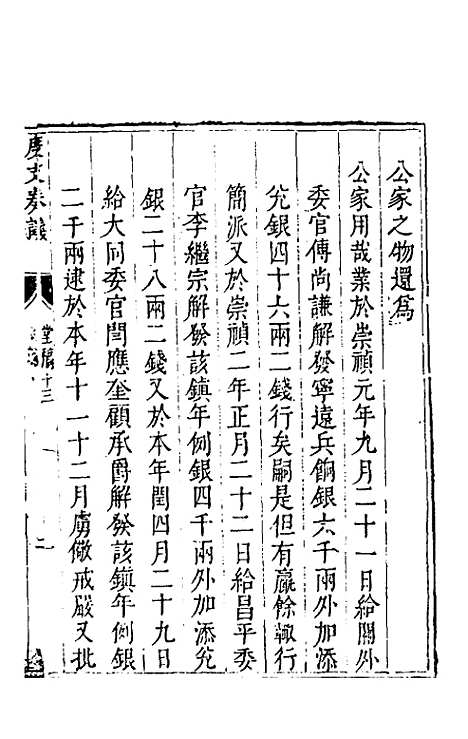 公家之物還爲
公家用哉業於崇禎元年九月二十一日給關外
委官傅尚謙解發寧遠兵餉銀六千兩外加添
兊銀四十六兩二錢行矣嗣是但有羸餘輙行
簡派又於崇禎二年正月二十二日給昌平委
官李繼宗解發該鎮年例銀四千兩外加添兊
銀二十八兩二錢又於本年閏四月二十九日
給大同委官閆應奎顧承爵解發該鎮年例銀
二千兩逮於本年十一十二月虜儆戒嚴又批
度支奏議
堂稿十三
二